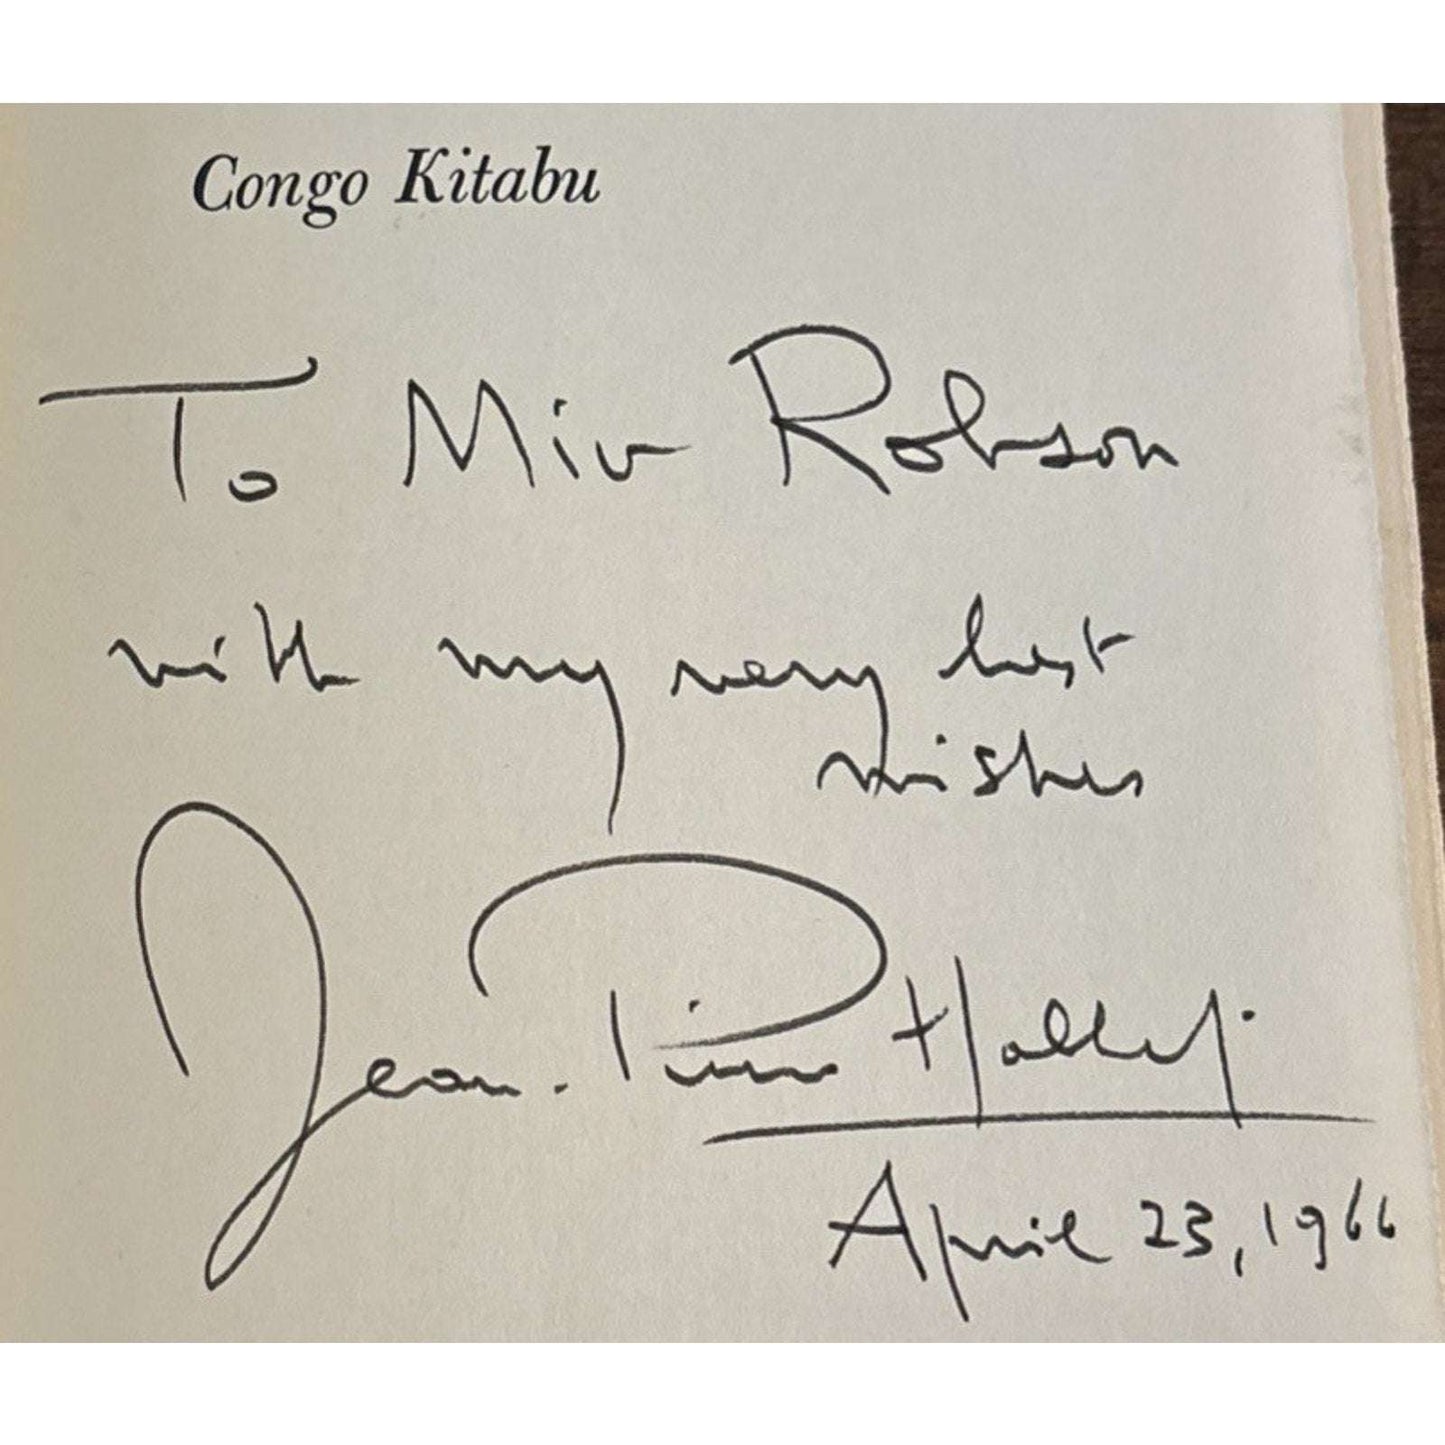 Congo Kitabu
To Miv Robson
with my very best
wishes
Jean-Pierre Hallet.
April 23, 1966